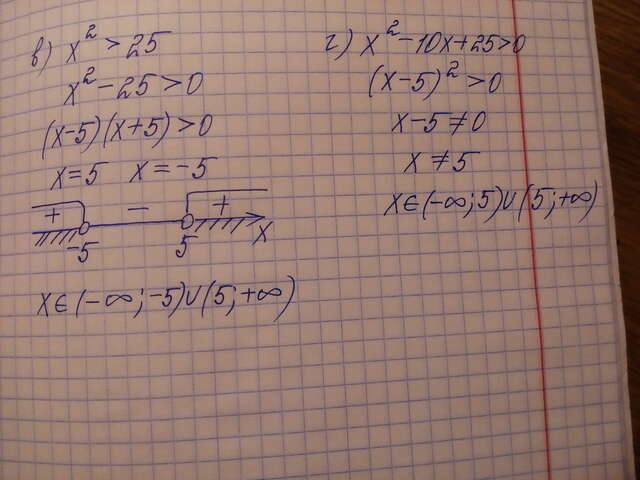 в) x² > 25
x² - 25 > 0
(x-5)(x+5) > 0
x = 5 x = -5
+ - +
-5 5 x
x ∈ (-∞; -5) ∪ (5; +∞)
г) x² - 10x + 25 > 0
(x-5)² > 0
x - 5 ≠ 0
x ≠ 5
x ∈ (-∞; 5) ∪ (5; +∞)